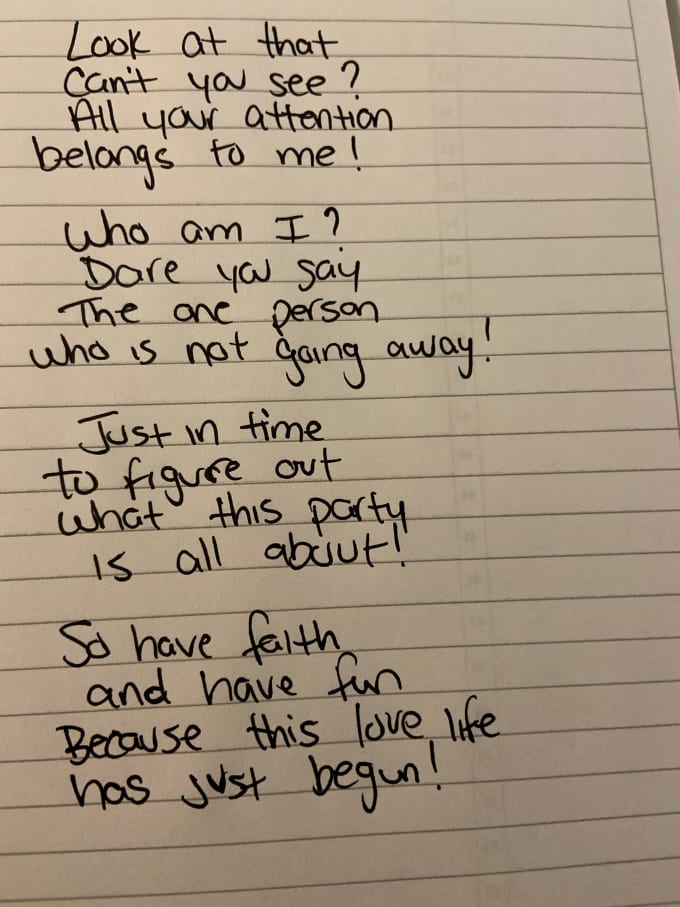 Look at that
Can't you see?
All your attention
belongs to me!
Who am I?
Dare you say
The one person
who is not going away!
Just in time
to figure out
what this party
is all about!
So have faith
and have fun
Because this love life
has just begun!